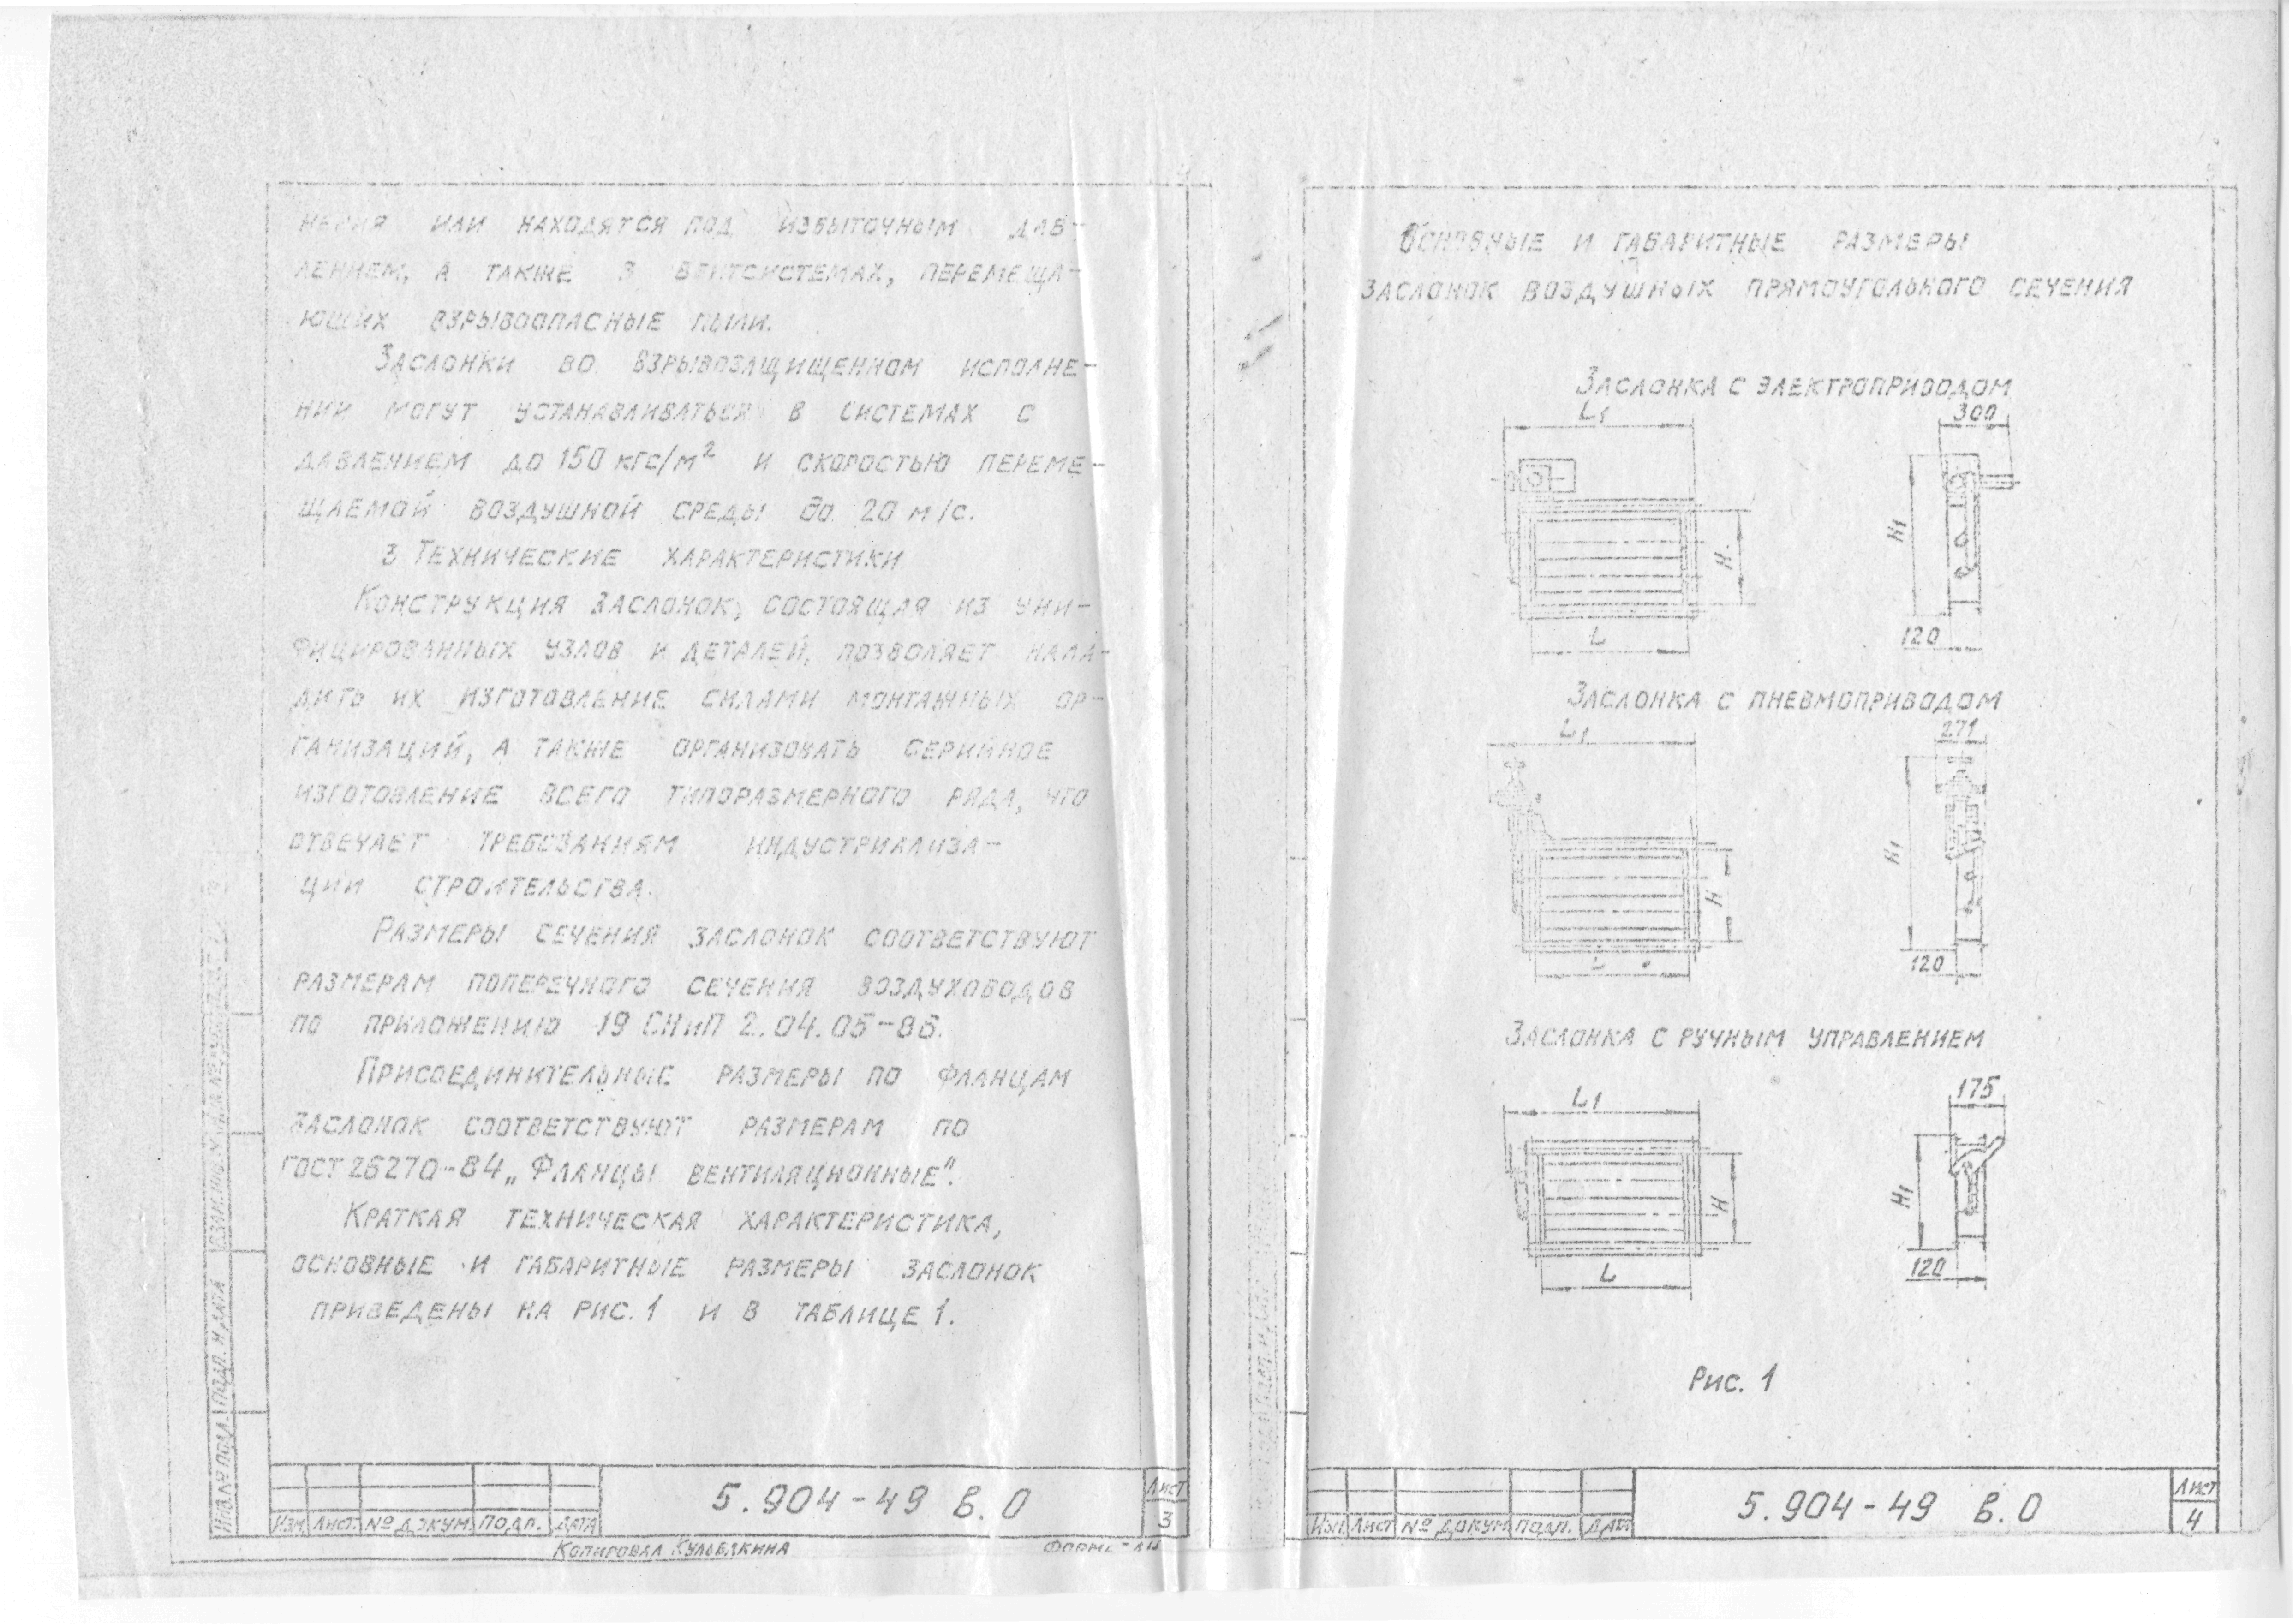 нения или находятся под избыточным дав-
лением, а также в вентсистемах, перемеща-
ющих взрывоопасные пыли.
Заслонки во взрывозащищенном исполне-
нии могут устанавливаться в системах с
давлением до 150 кгс/м² и скоростью переме-
щаемой воздушной среды до 20 м/с.
3 Технические характеристики
Конструкция заслонок, состоящая из уни-
фицированных узлов и деталей, позволяет нала-
дить их изготовление силами монтажных ор-
ганизаций, а также организовать серийное
изготовление всего типоразмерного ряда, что
отвечает требованиям индустриализа-
ции строительства.
Размеры сечения заслонок соответствуют
размерам поперечного сечения воздуховодов
по приложению 19 СНиП 2.04.05-86.
Присоединительные размеры по фланцам
заслонок соответствуют размерам по
ГОСТ 26270-84 „Фланцы вентиляционные".
Краткая техническая характеристика,
основные и габаритные размеры заслонок
приведены на рис. 1 и в таблице 1.
Инв.№ подл. Подп. и дата
5.904-49 в.0
Лист
3
Изм Лист № докум. Подп. Дата
Копировал Кульбякина
Основные и габаритные размеры
заслонок воздушных прямоугольного сечения
Заслонка с электроприводом
L1 300
H1
H
L 120
Заслонка с пневмоприводом
L1 271
H1
H
L 120
Заслонка с ручным управлением
L1 175
H1
H
L 120
Рис. 1
5.904-49 в.0
Лист
4
Изм Лист № докум Подп. Дата